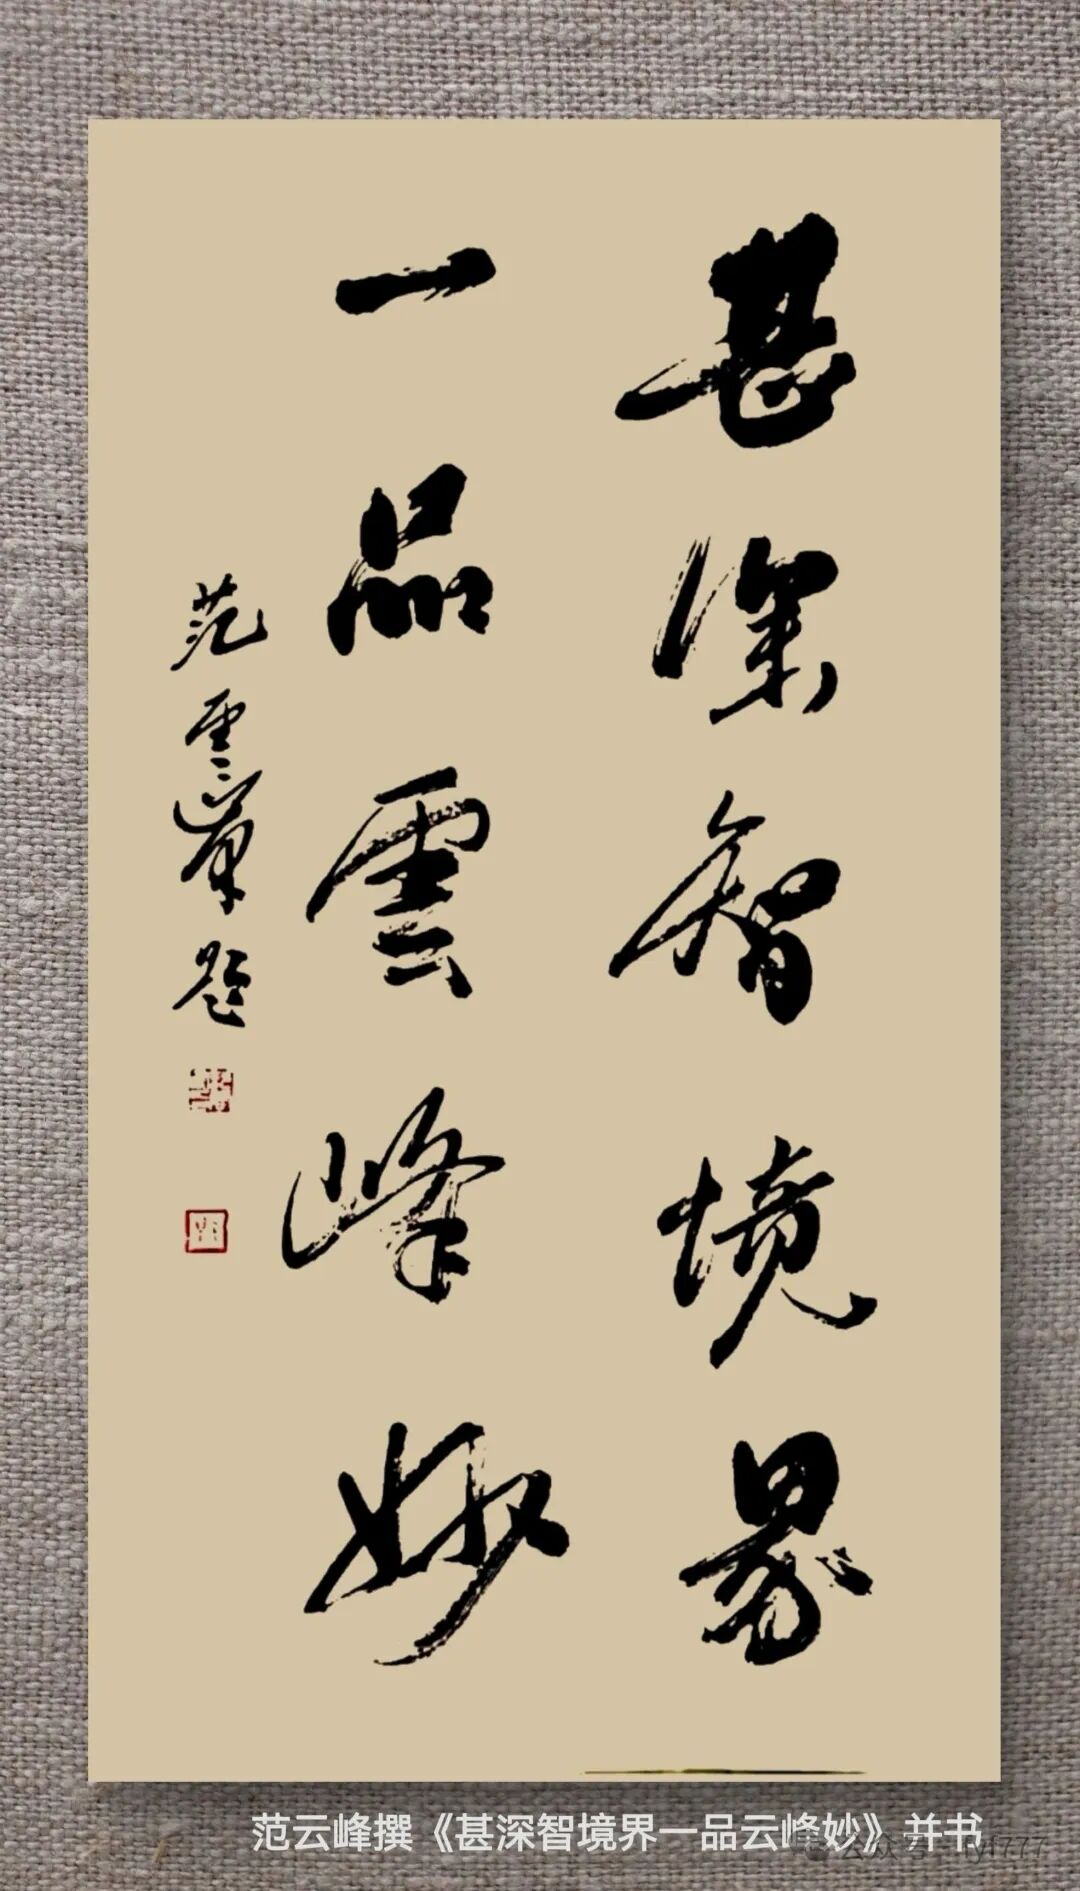 甚深智境界
一品雲峰妙
范雲峯題
范云峰撰《甚深智境界一品云峰妙》并书